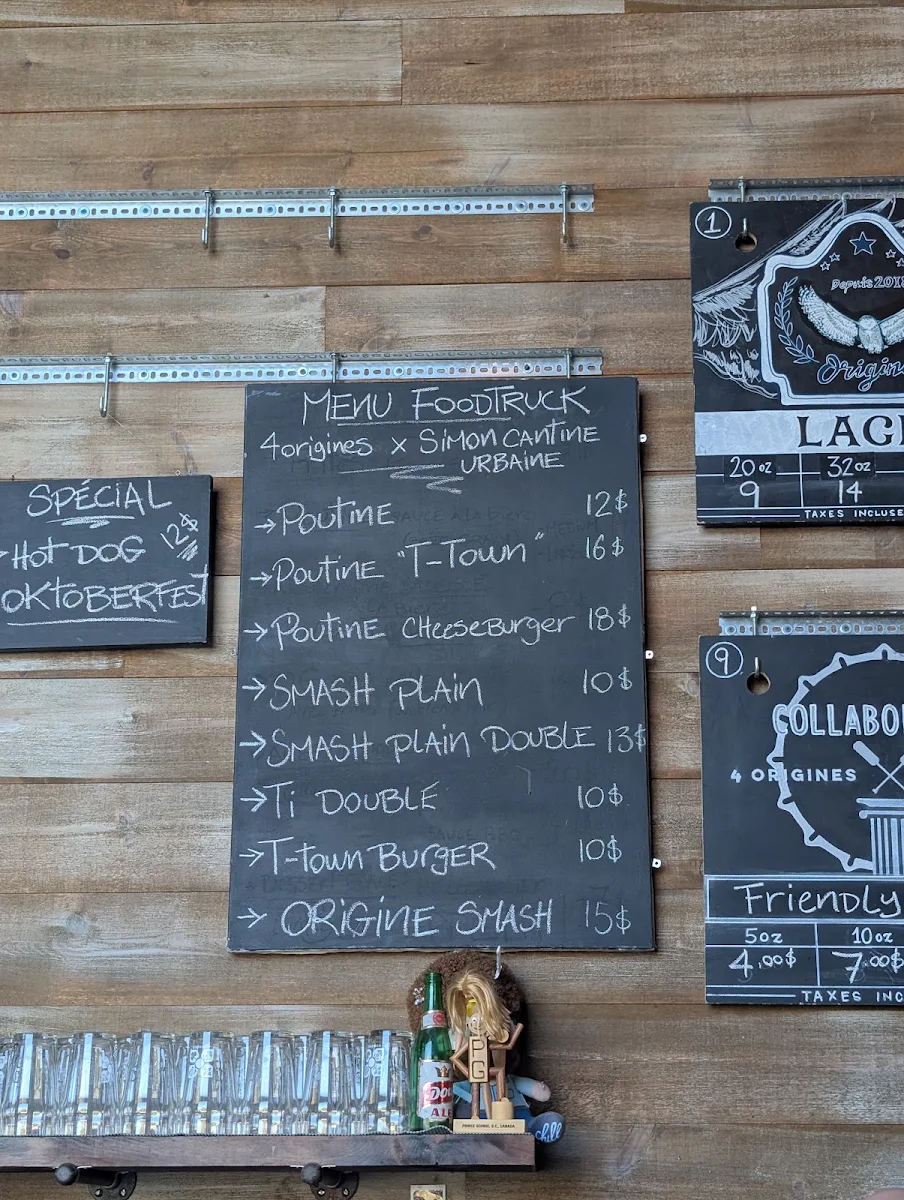 MENU FOODTRUCK
4origines x SIMON CANTINE
URBAINE
→ POUTINE 12$
→ POUTINE "T-TOWN" 16$
→ POUTINE CHEESEBURGER 18$
→ SMASH PLAIN 10$
→ SMASH PLAIN DOUBLE 13$
→ Ti DOUBLE 10$
→ T-TOWN BURGER 10$
→ ORIGINE SMASH 15$
SPÉCIAL
HOT DOG 12$
OKTOBERFEST
1
Depuis 2018
Origin
LAG
20 oz 32 oz
9 14
TAXES INCLUSE
9
COLLABO
4 ORIGINES
Friendly
5oz 10oz
4.00$ 7.00$
TAXES INC
PG
ALE
PRINCE GEORGE, B.C., CANADA
chill